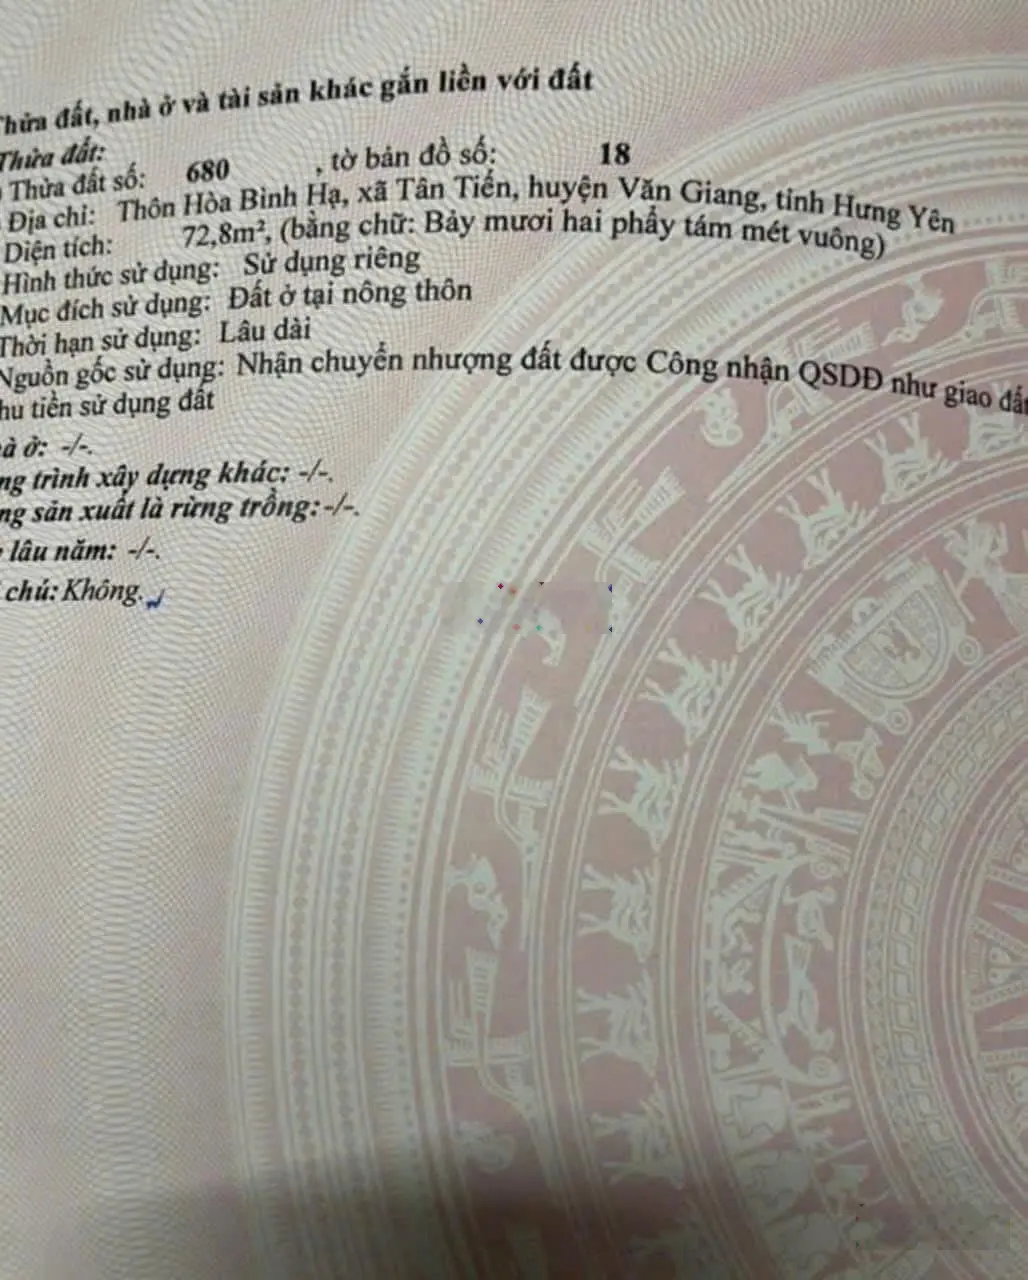 Thửa đất, nhà ở và tài sản khác gắn liền với đất
Thửa đất:
Thửa đất số: 680 , tờ bản đồ số: 18
Địa chỉ: Thôn Hòa Bình Hạ, xã Tân Tiến, huyện Văn Giang, tỉnh Hưng Yên
Diện tích: 72,8m², (bằng chữ: Bảy mươi hai phẩy tám mét vuông)
Hình thức sử dụng: Sử dụng riêng
Mục đích sử dụng: Đất ở tại nông thôn
Thời hạn sử dụng: Lâu dài
Nguồn gốc sử dụng: Nhận chuyển nhượng đất được Công nhận QSDĐ như giao đất
hu tiền sử dụng đất
à ở: -/-.
ng trình xây dựng khác: -/-.
ng sản xuất là rừng trồng: -/-.
lâu năm: -/-.
chú: Không.